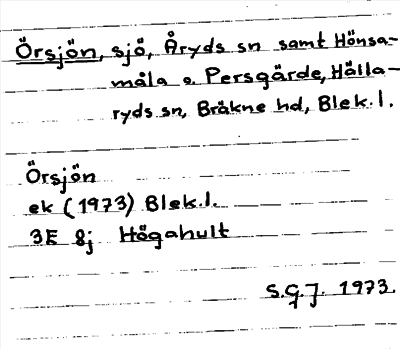 Örsjön, sjö, Åryds sn samt Hönsa-
måla o. Persgärde, Hälla-
ryds sn, Bräkne hd, Blek.l.
Örsjön
ek (1973) Blek.l.
3E 8j Högahult
S.G.J. 1973.